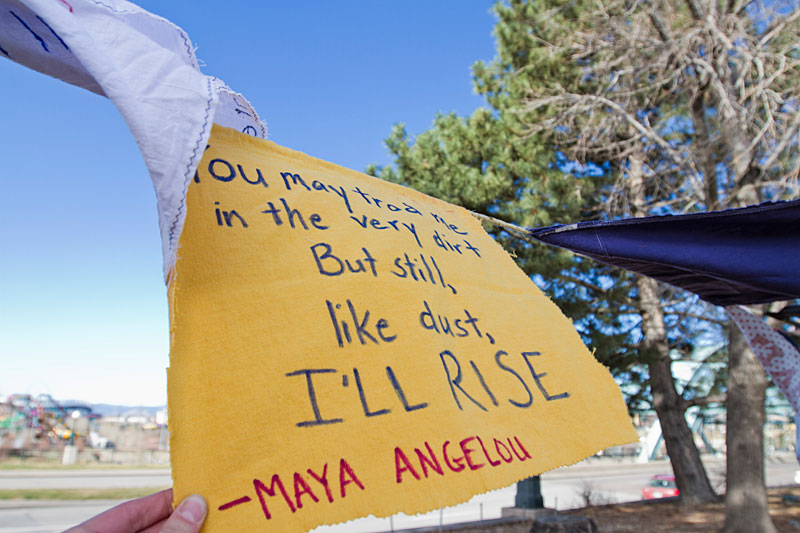 You may trod me
in the very dirt
But still,
like dust,
I'LL RISE
-MAYA ANGELOU